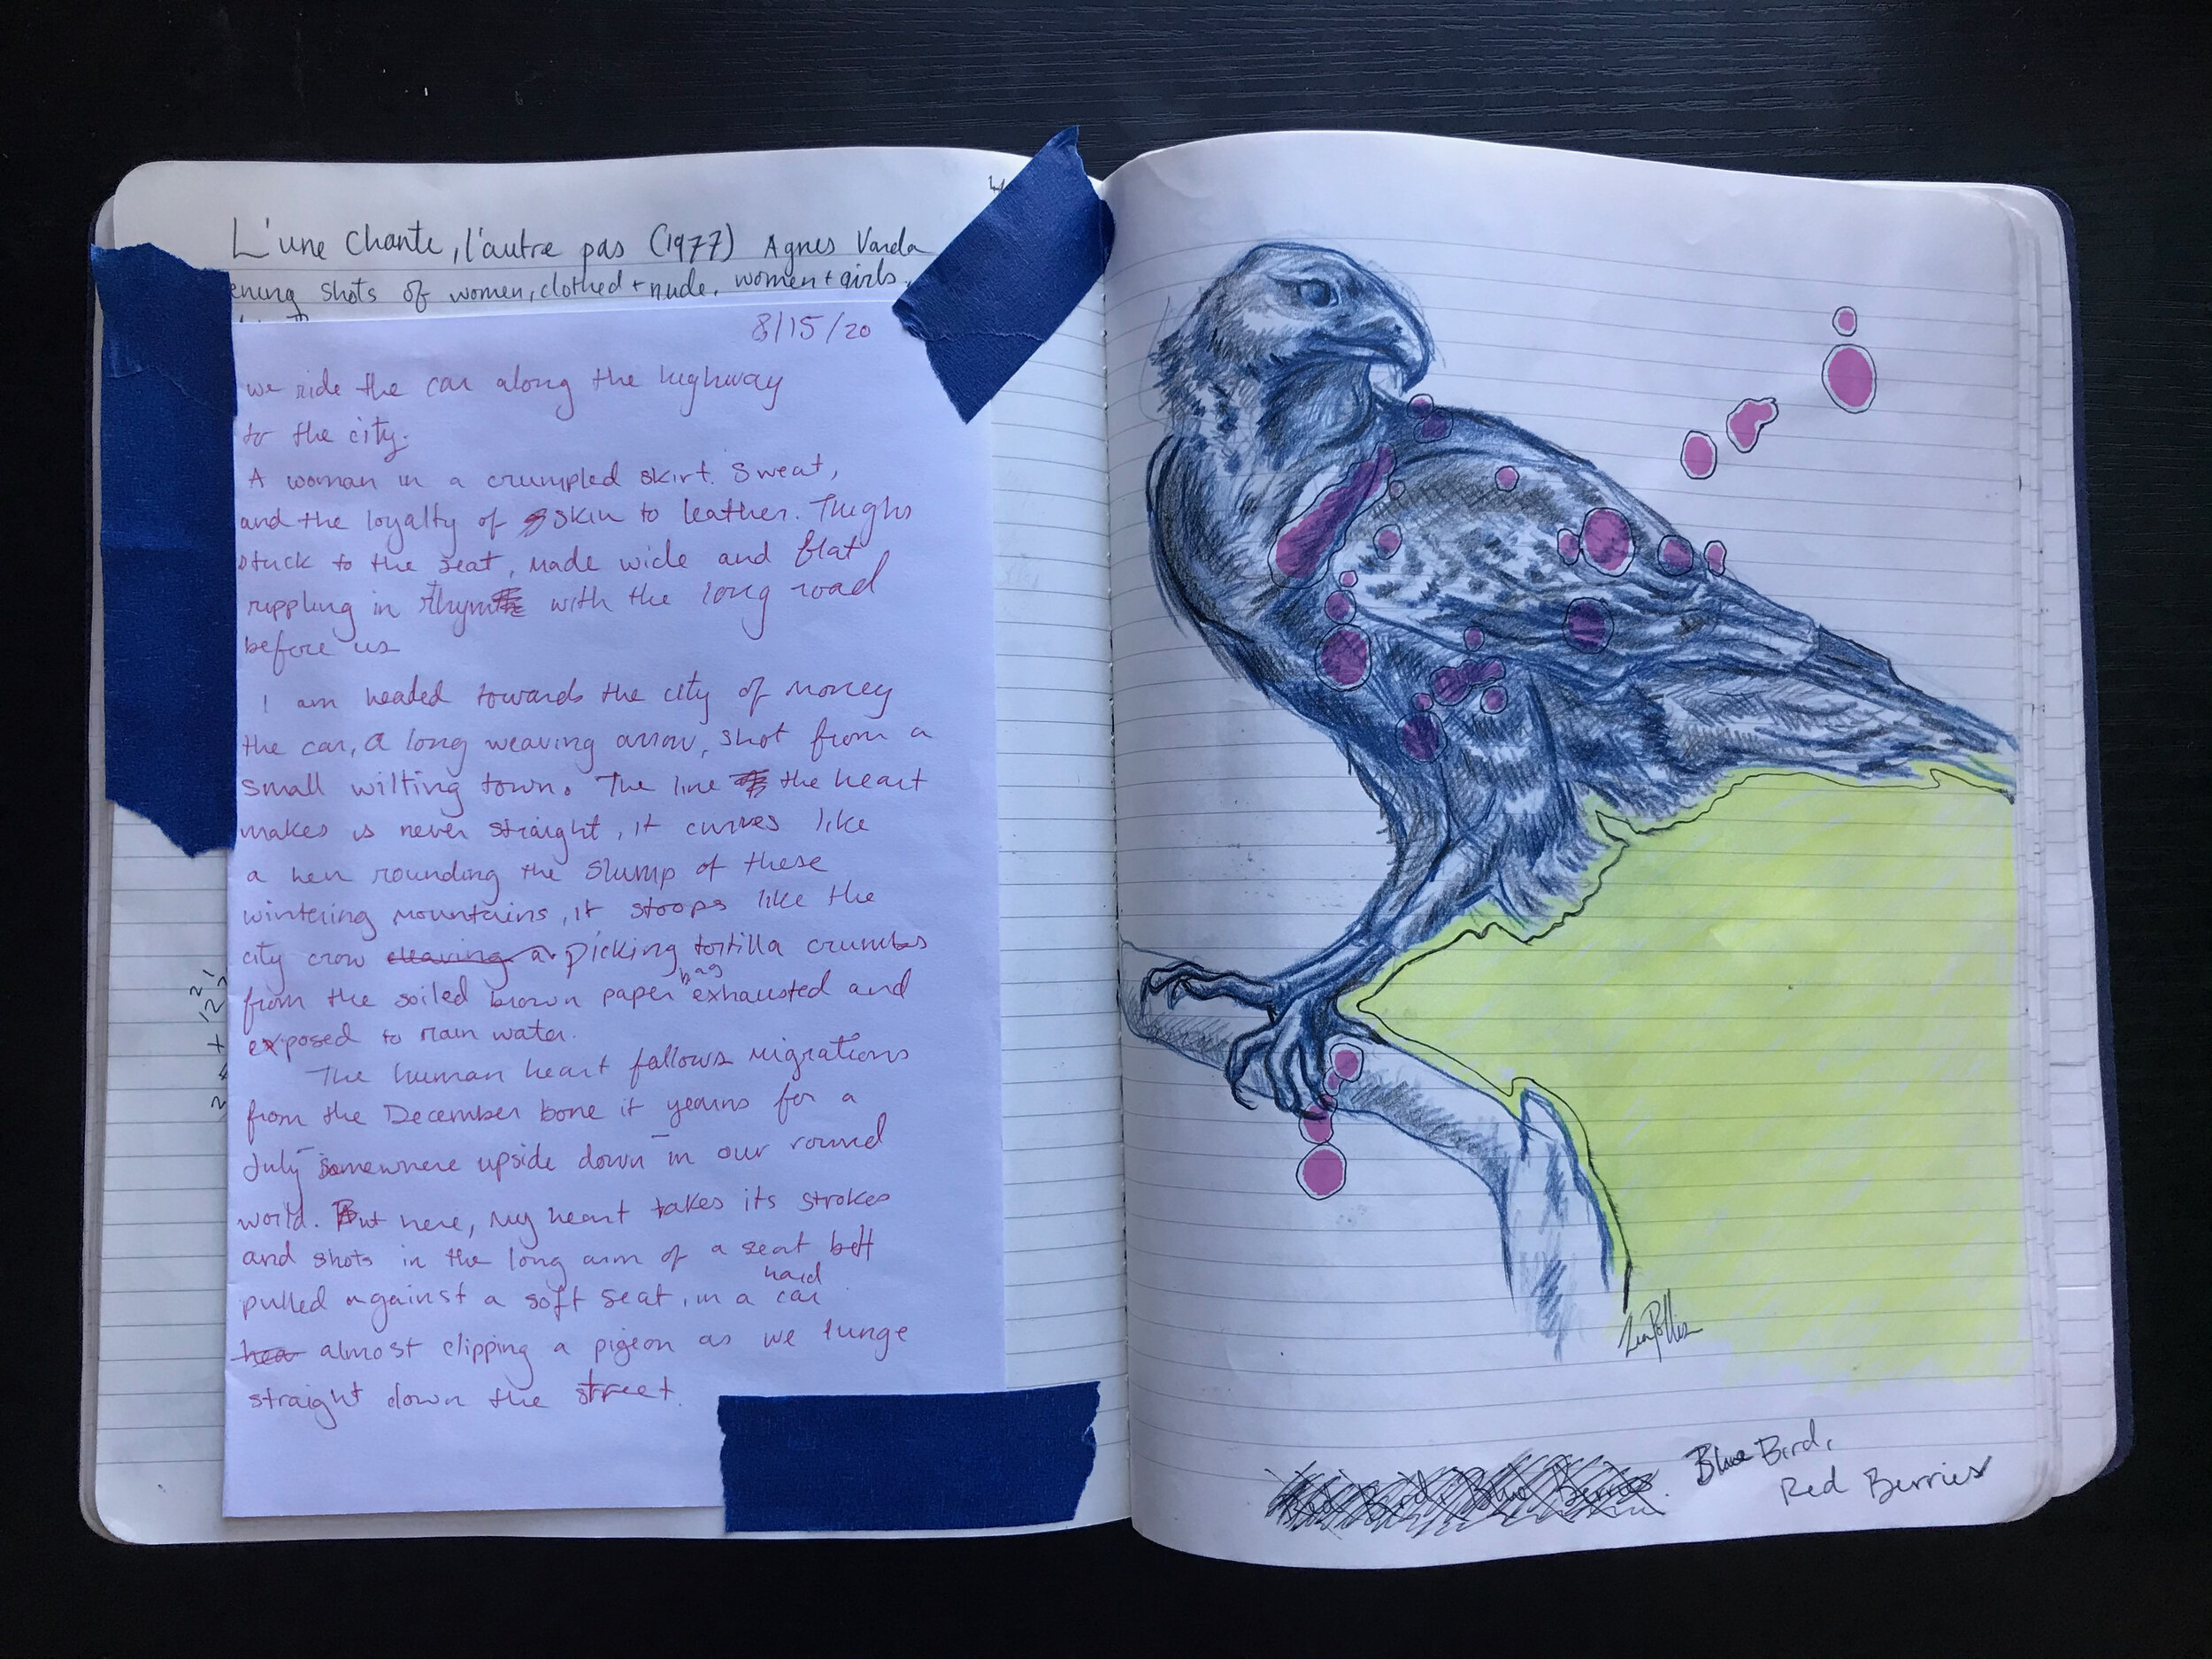 L'une Chante, l'autre pas (1977) Agnes Varda
ening shots of women, clothed + nude, women + girls.
8/15/20
we ride the car along the highway
to the city.
A woman in a crumpled skirt. Sweat,
and the loyalty of skin to leather. Thighs
stuck to the seat, made wide and flat
rippling in rhym with the long road
before us
I am headed towards the city of money
the car, a long weaving arrow, shot from a
small wilting town. The line the heart
makes is never straight, it curves like
a hen rounding the slump of these
wintering mountains, it stoops like the
city crow cleaving a picking tortilla crumbs
from the soiled brown paper bag exhausted and
exposed to rain water.
The human heart follows migrations
from the December bone it yearns for a
July – somewhere upside down – in our round
world. But here, my heart takes its strokes
and shots in the long arm of a seat belt
pulled against a soft seat, in a hard car
hea almost clipping a pigeon as we lunge
straight down the street.
Red Bird, Blue Berries.
Blue Bird,
Red Berries